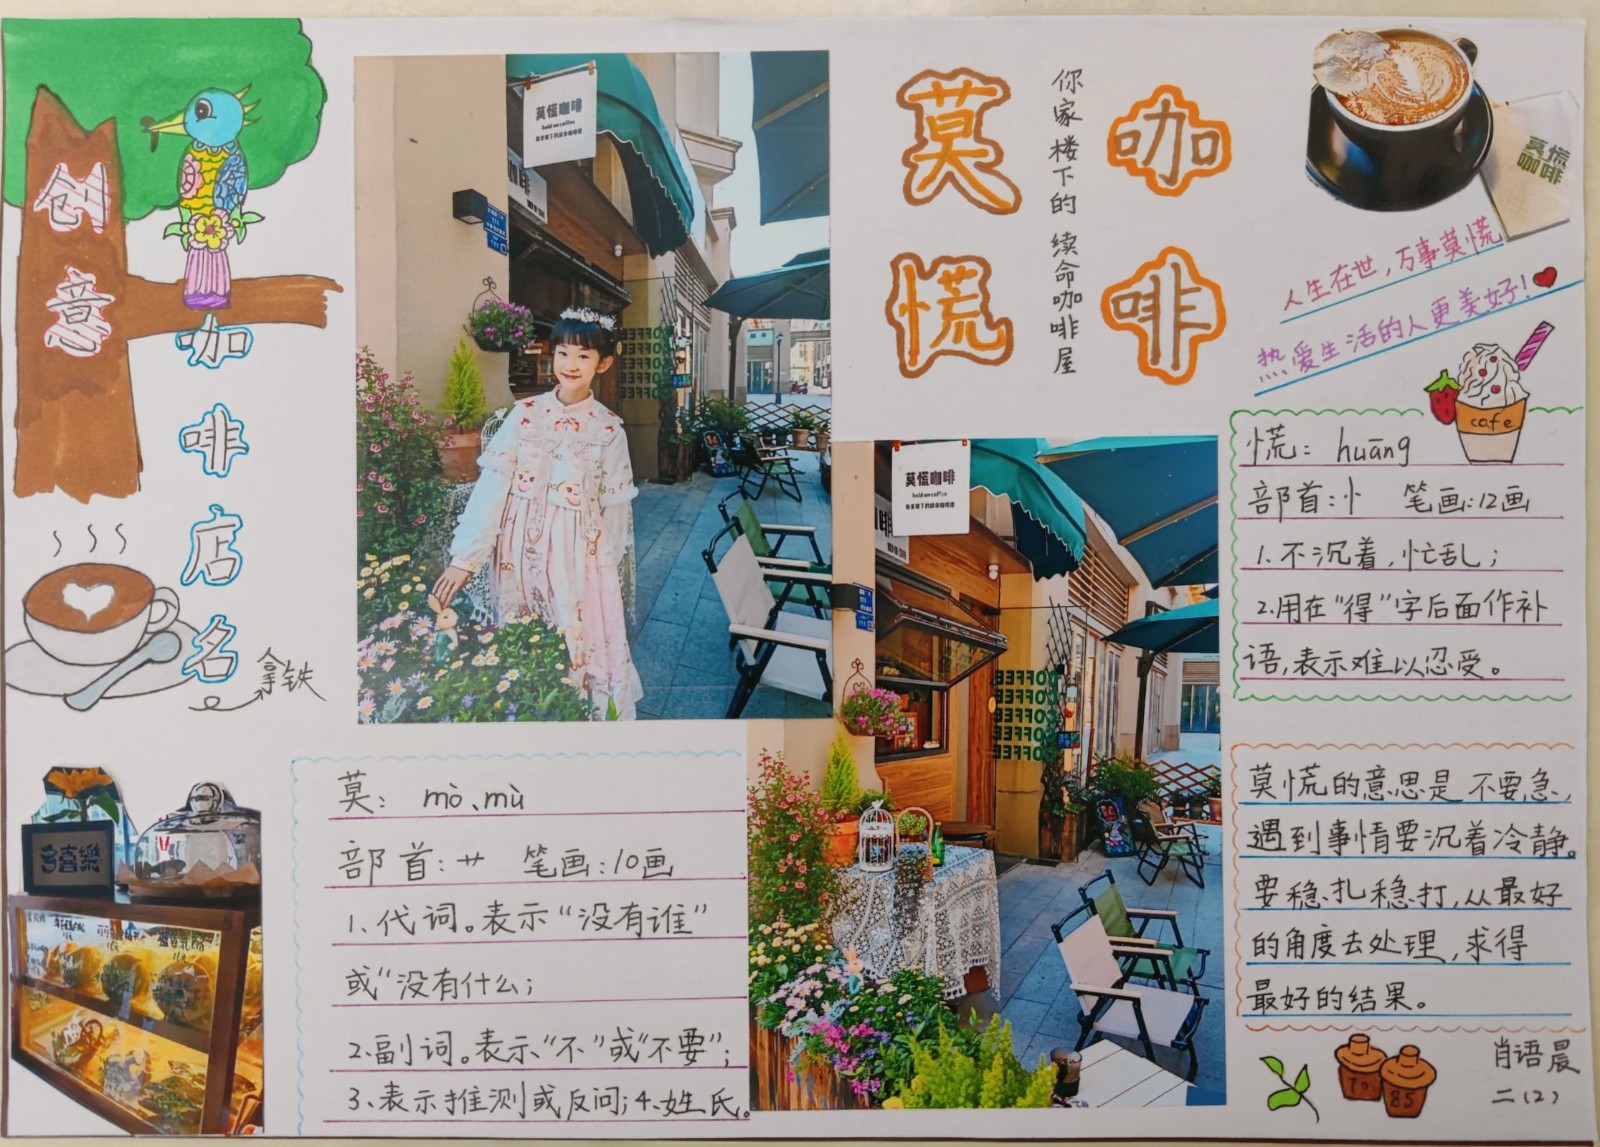 创意
咖啡店名
拿铁
莫慌咖啡
hold on coffee
你家楼下的续命咖啡屋
咖啡
COFFEE
COFFEE
COFFEE
COFFEE
莫慌
你家楼下的 续命咖啡屋
咖啡
莫慌
咖啡
人生在世，万事莫慌
热爱生活的人更美好！
cafe
慌：huāng
部首：忄 笔画：12画
1.不沉着，忙乱；
2.用在“得”字后面作补
语，表示难以忍受。
莫慌咖啡
hold on coffee
你家楼下的续命咖啡屋
咖啡
COFFEE
COFFEE
COFFEE
COFFEE
COFFEE
喜樂
莫：mò、mù
部首：艹 笔画：10画
1、代词。表示“没有谁”
或“没有什么；
2.副词。表示“不”或“不要”；
3、表示推测或反问；4、姓氏。
莫慌的意思是不要急，
遇到事情要沉着冷静。
要稳扎稳打，从最好
的角度去处理，求得
最好的结果。
70
85
肖语晨
二（2）